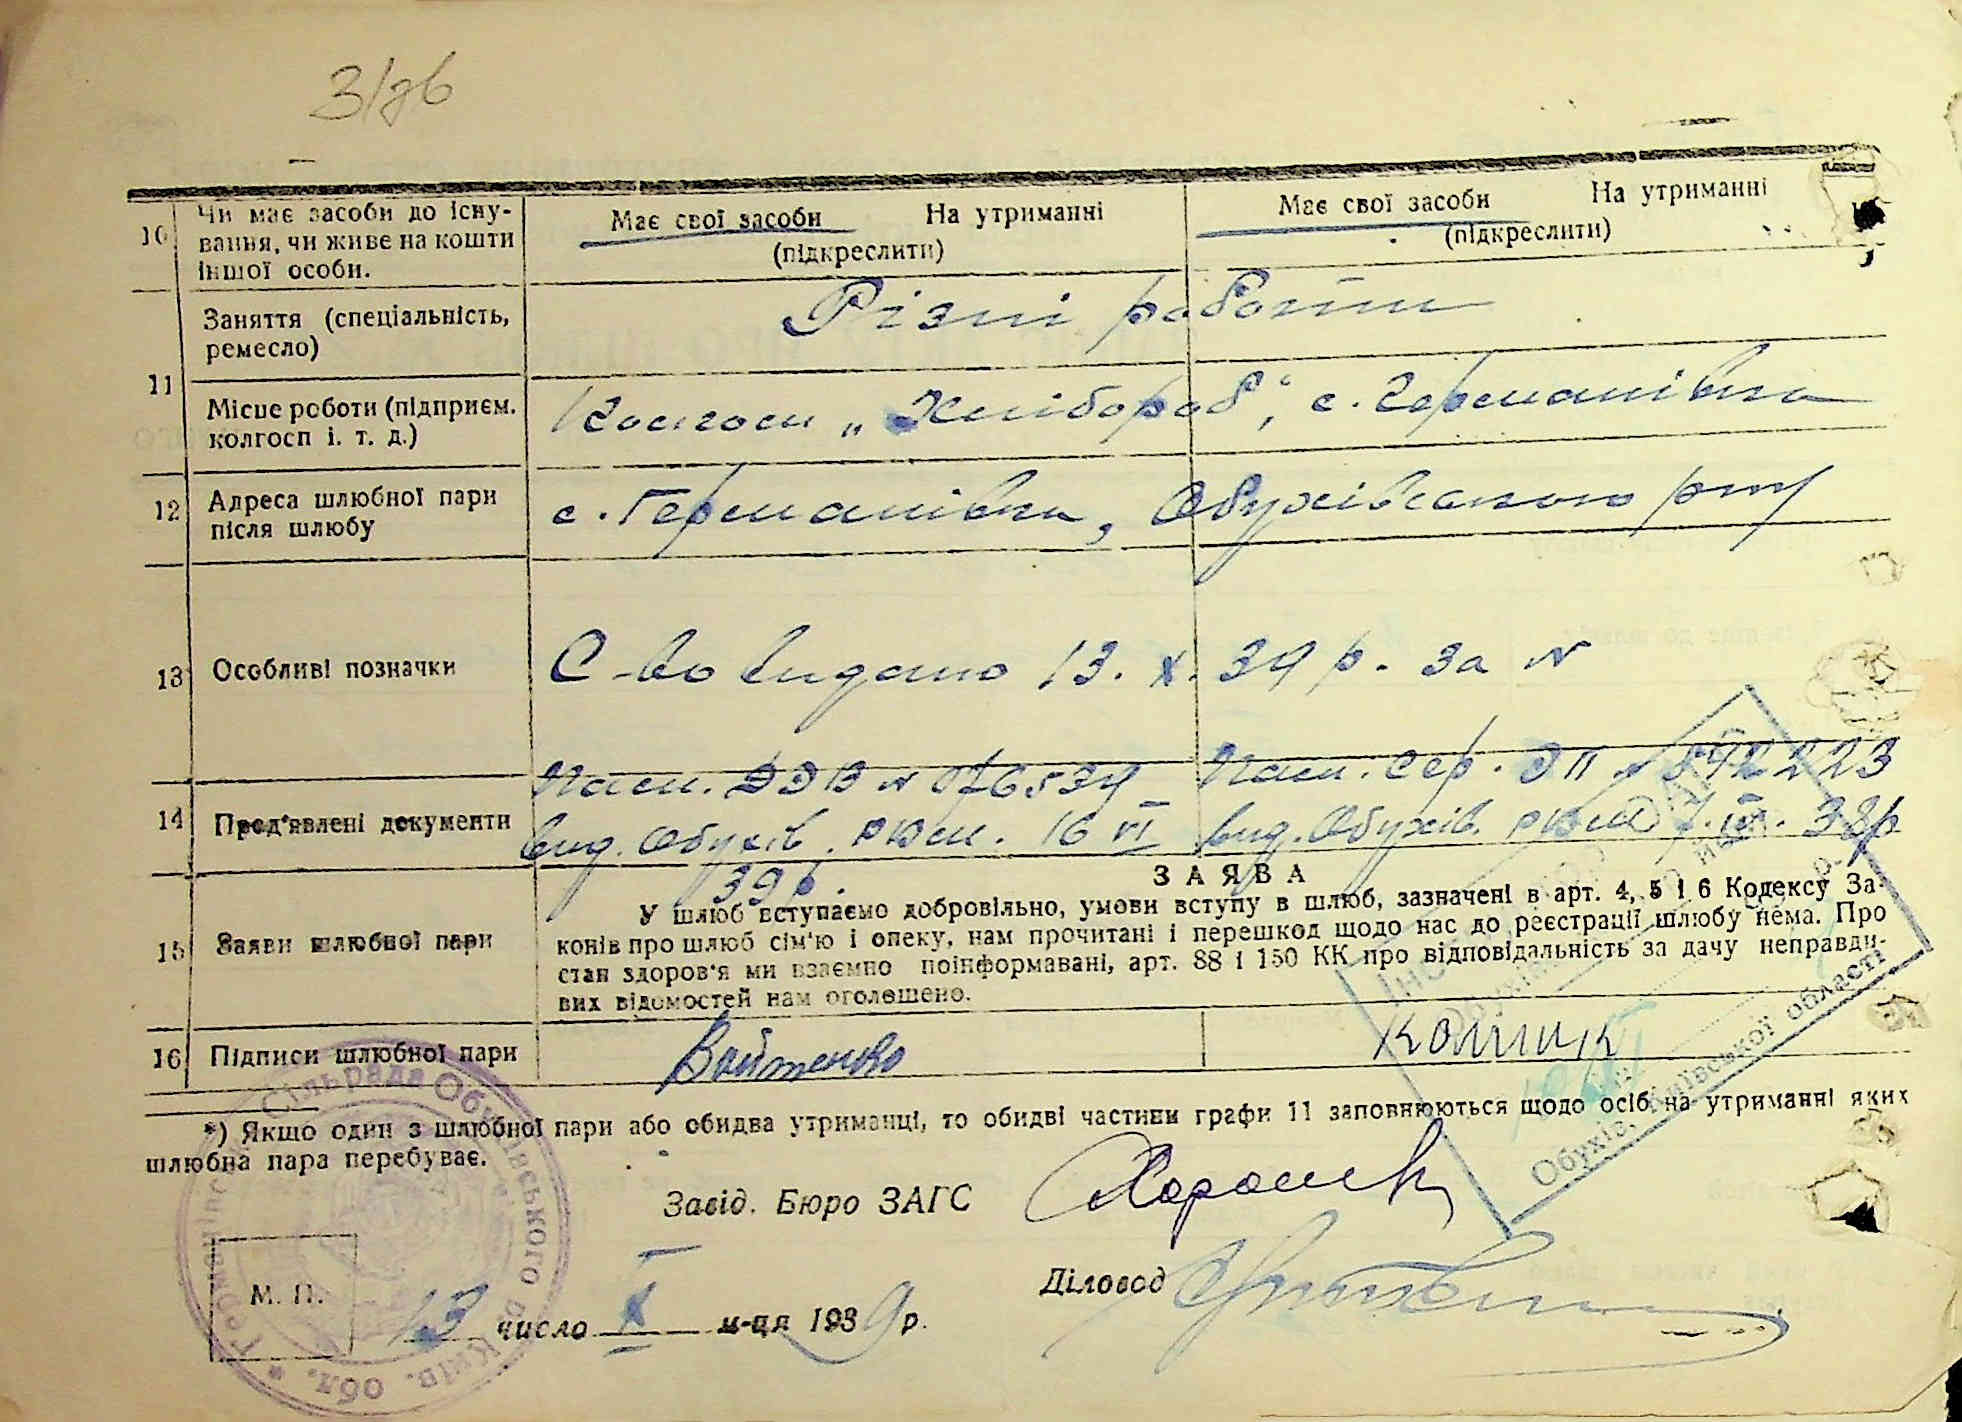 3/дв
10 Чи має засоби до існування, чи живе на кошти іншої особи.
Має свої засоби На утриманні
(підкреслити)
Має свої засоби На утриманні
(підкреслити)
11 Заняття (спеціальність, ремесло)
Різні роботи
Місце роботи (підприєм. колгосп і. т. д.)
Колгосп „Хлібороб", с. Германівка
12 Адреса шлюбної пари після шлюбу
с. Германівка, Обухівського р-ну
13 Особливі позначки
С-во видано 13. X. 39 р. за №
14 Пред'явлені документи
Пасп. ДЭВ № 076539
вид. Обухів. РКМ. 16 VI
39 р.
Пасп. сер. ЭП № 542223
вид. Обухів. РКМ 7. 38р
15 Заяви шлюбної пари
ЗАЯВА
У шлюб вступаємо добровільно, умови вступу в шлюб, зазначені в арт. 4, 5 і 6 Кодексу За-
конів про шлюб сім'ю і опеку, нам прочитані і перешкод щодо нас до реєстрації шлюбу нема. Про
стан здоров'я ми взаємно поінформавані, арт. 88 і 150 КК про відповідальність за дачу неправди-
вих відомостей нам оголошено.
16 Підписи шлюбної пари
Войтенко
Кошик
*) Якщо один з шлюбної пари або обидва утриманці, то обидві частини графи 11 заповнюються щодо осіб, на утриманні яких
шлюбна пара перебуває.
Завід. Бюро ЗАГС
Діловод
М. П.
13 число X м-ця 1939 р.
Сільрада Обухівського р. Київ. обл. *
Обухів, Київської області